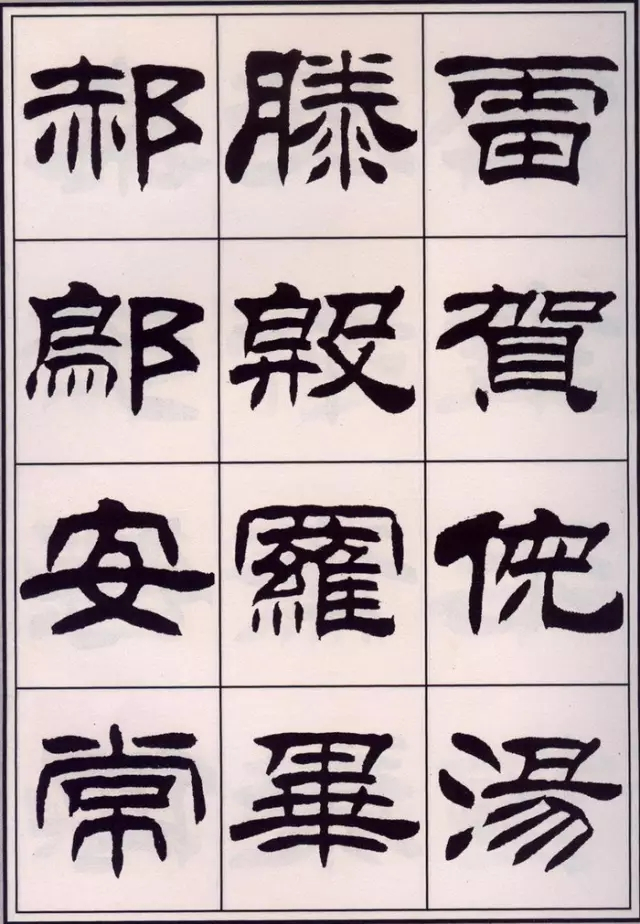 雷賀倪湯
滕殷羅畢
郝鄔安常